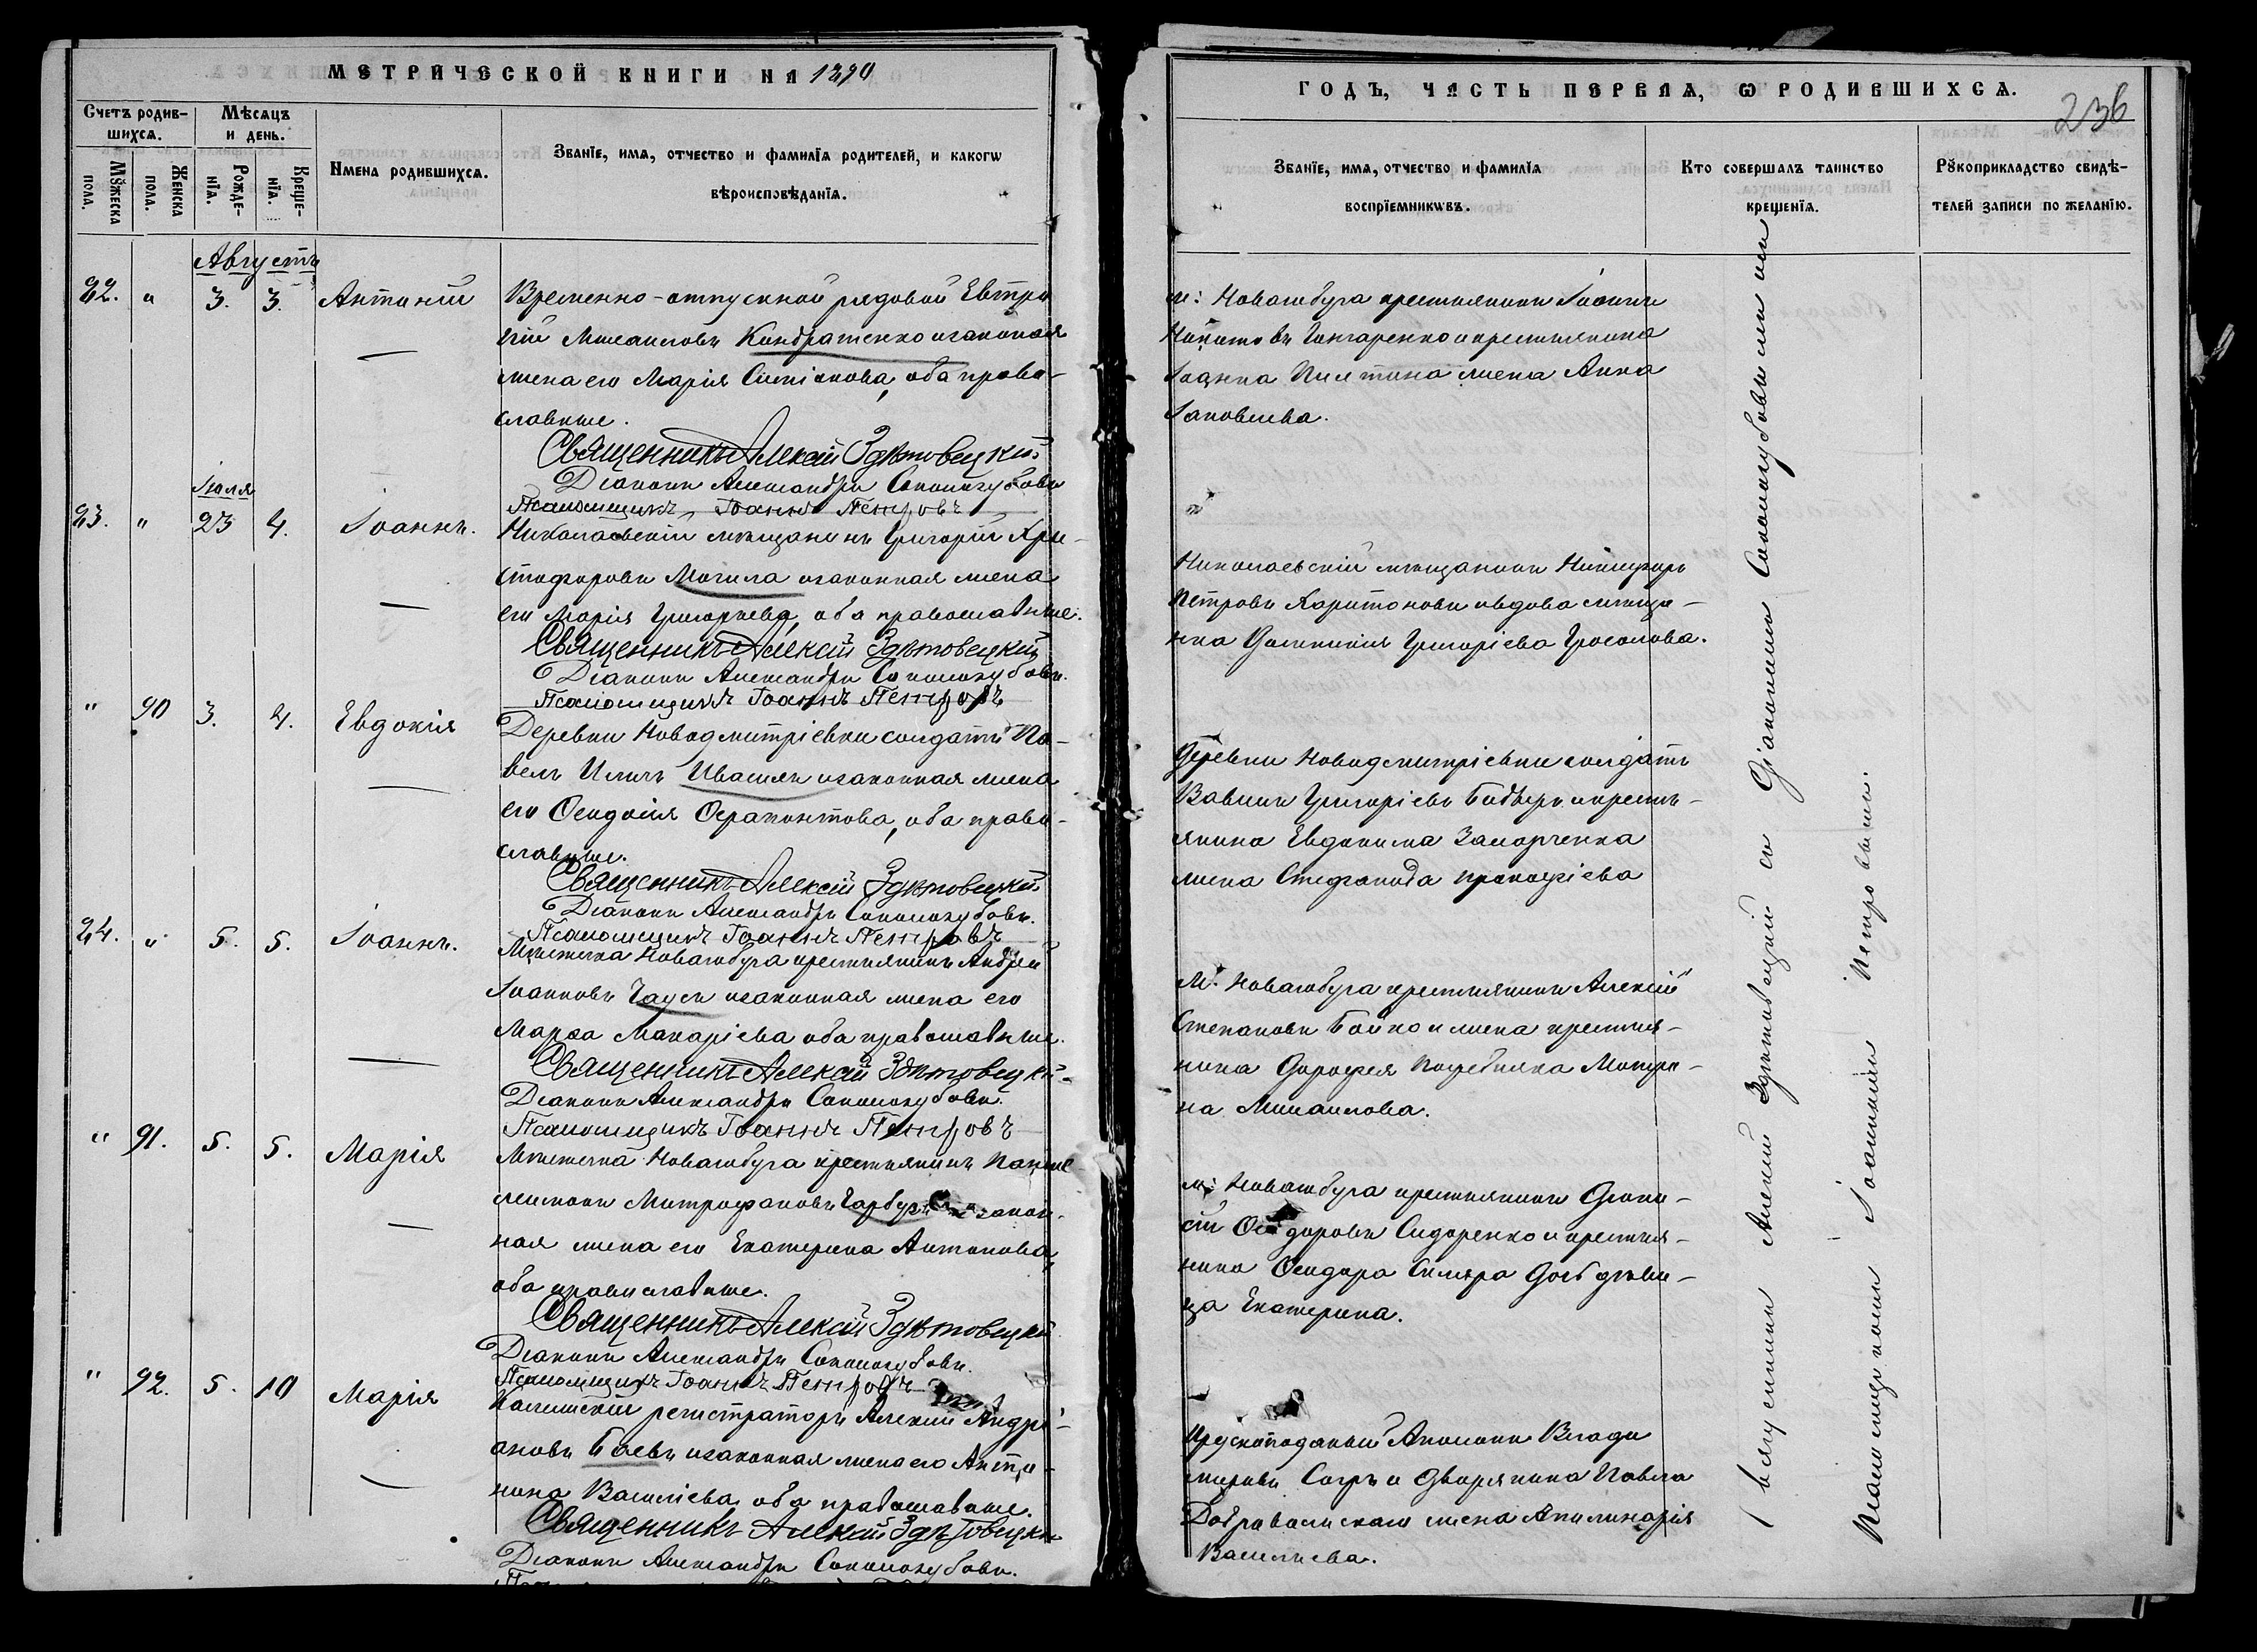 МЕТРИЧЕСКОЙ КНИГИ НА 1890
Счетъ родив-
шихся.
Мѣсяцъ
и день.
Мꙋжеска
пола.
Женска
пола.
Рожде-
нїя.
Креще-
нїя.
Имена родившихся.
Званїе, имя, отчество и фамилїя родителей, и какогѡ
вѣроисповѣданїя.
Августъ
82. " 3. 3. Антоній
Временно-отпускной рядовой Евтро
пій Михаиловъ Кондратенко и законная
жена его Марія Симіонова, оба право-
славные.
Священникъ Алексій Здѣтовецкій
Діаконъ Александръ Сокологубовъ
Псаломщикъ Іоаннъ Петровъ
Іюля
83. " 23 4. Іоаннъ.
Николаевскій мѣщанинъ Григорій Хри-
стофоровъ Могила и законная жена
его Марія Григорьева, оба православные.
Священникъ Алексій Здѣтовецкій
Діаконъ Александръ Сокологубовъ.
Псаломщикъ Іоаннъ Петровъ
" 90 3. 4. Евдокія
Деревни Новодмитріевки солдатъ Па-
велъ Ильичъ Ивашки и законная жена
его Ѳеодосія Ѳерапонтова, оба право-
славные.
Священникъ Алексій Здѣтовецкій
Діаконъ Александръ Сокологубовъ.
Псаломщикъ Іоаннъ Петровъ
84. " 5. 5. Іоаннъ.
Мѣстечка Новагобуга крестьянинъ Андрей
Іоанновъ Гаусъ и законная жена его
Марѳа Макаріева оба православные.
Священникъ Алексій Здѣтовецкій
Діаконъ Александръ Сокологубовъ.
Псаломщикъ Іоаннъ Петровъ
" 91. 5. 5. Марія
Мѣстечка Новагобуга крестьянинъ Панте-
леимонъ Митрофановъ Гарбузъ и закон-
ная жена его Екатерина Антонова,
оба православные.
Священникъ Алексій Здѣтовецкій
Діаконъ Александръ Сокологубовъ.
Псаломщикъ Іоаннъ Петровъ
" 92. 5. 10 Марія
регистраторъ Алексій Андрі-
ановъ Баевъ и законная жена его Анто-
нина Василіева, оба православные.
Священникъ Алексій Здѣтовецкій
Діаконъ Александръ Сокологубовъ.
ГОДЪ, ЧАСТЬ ПЕРВАЯ, Ѡ РОДИВШИХСЯ.
236
Званїе, имя, отчество и фамилїя
воспрїемникѡвъ.
Кто совершалъ таинство
крещенїя.
Рꙋкоприкладство свидѣ-
телей записи по желанїю.
м: Новагобуга крестьянинъ Іоаннъ
Никитовъ Гонгаренко и крестьянина
Іоанна жена Анна
Іаковлева.
Николаевскій мѣщанинъ Никифоръ
Петровъ Харитоновъ и вдова мѣща-
нка Домникія Григоріева Гроголова.
Деревни Новодмитріевки солдатъ
Григоріевъ и кресть-
янина Евдокима
жена Стефанида Прокофіева
М. Новагобуга крестьянинъ Алексій
Степановъ Бойко и жена крестья-
нина Дорофея Погребняка Матро-
на Михаилова.
м: Новагобуга крестьянинъ Діони-
сій Ѳеодоровъ Сидоренко и крестья-
нина Ѳеодора дочь дѣви-
ца Екатерина.
Прусскоподаный Влади
міровъ и дворянина Павла
Добровольскаго жена Аполинарія
Василіева.
Священникъ Алексій Здѣтовецкій съ Діакономъ Сокологубовымъ и
Псаломщикомъ Іоанномъ Петровымъ.